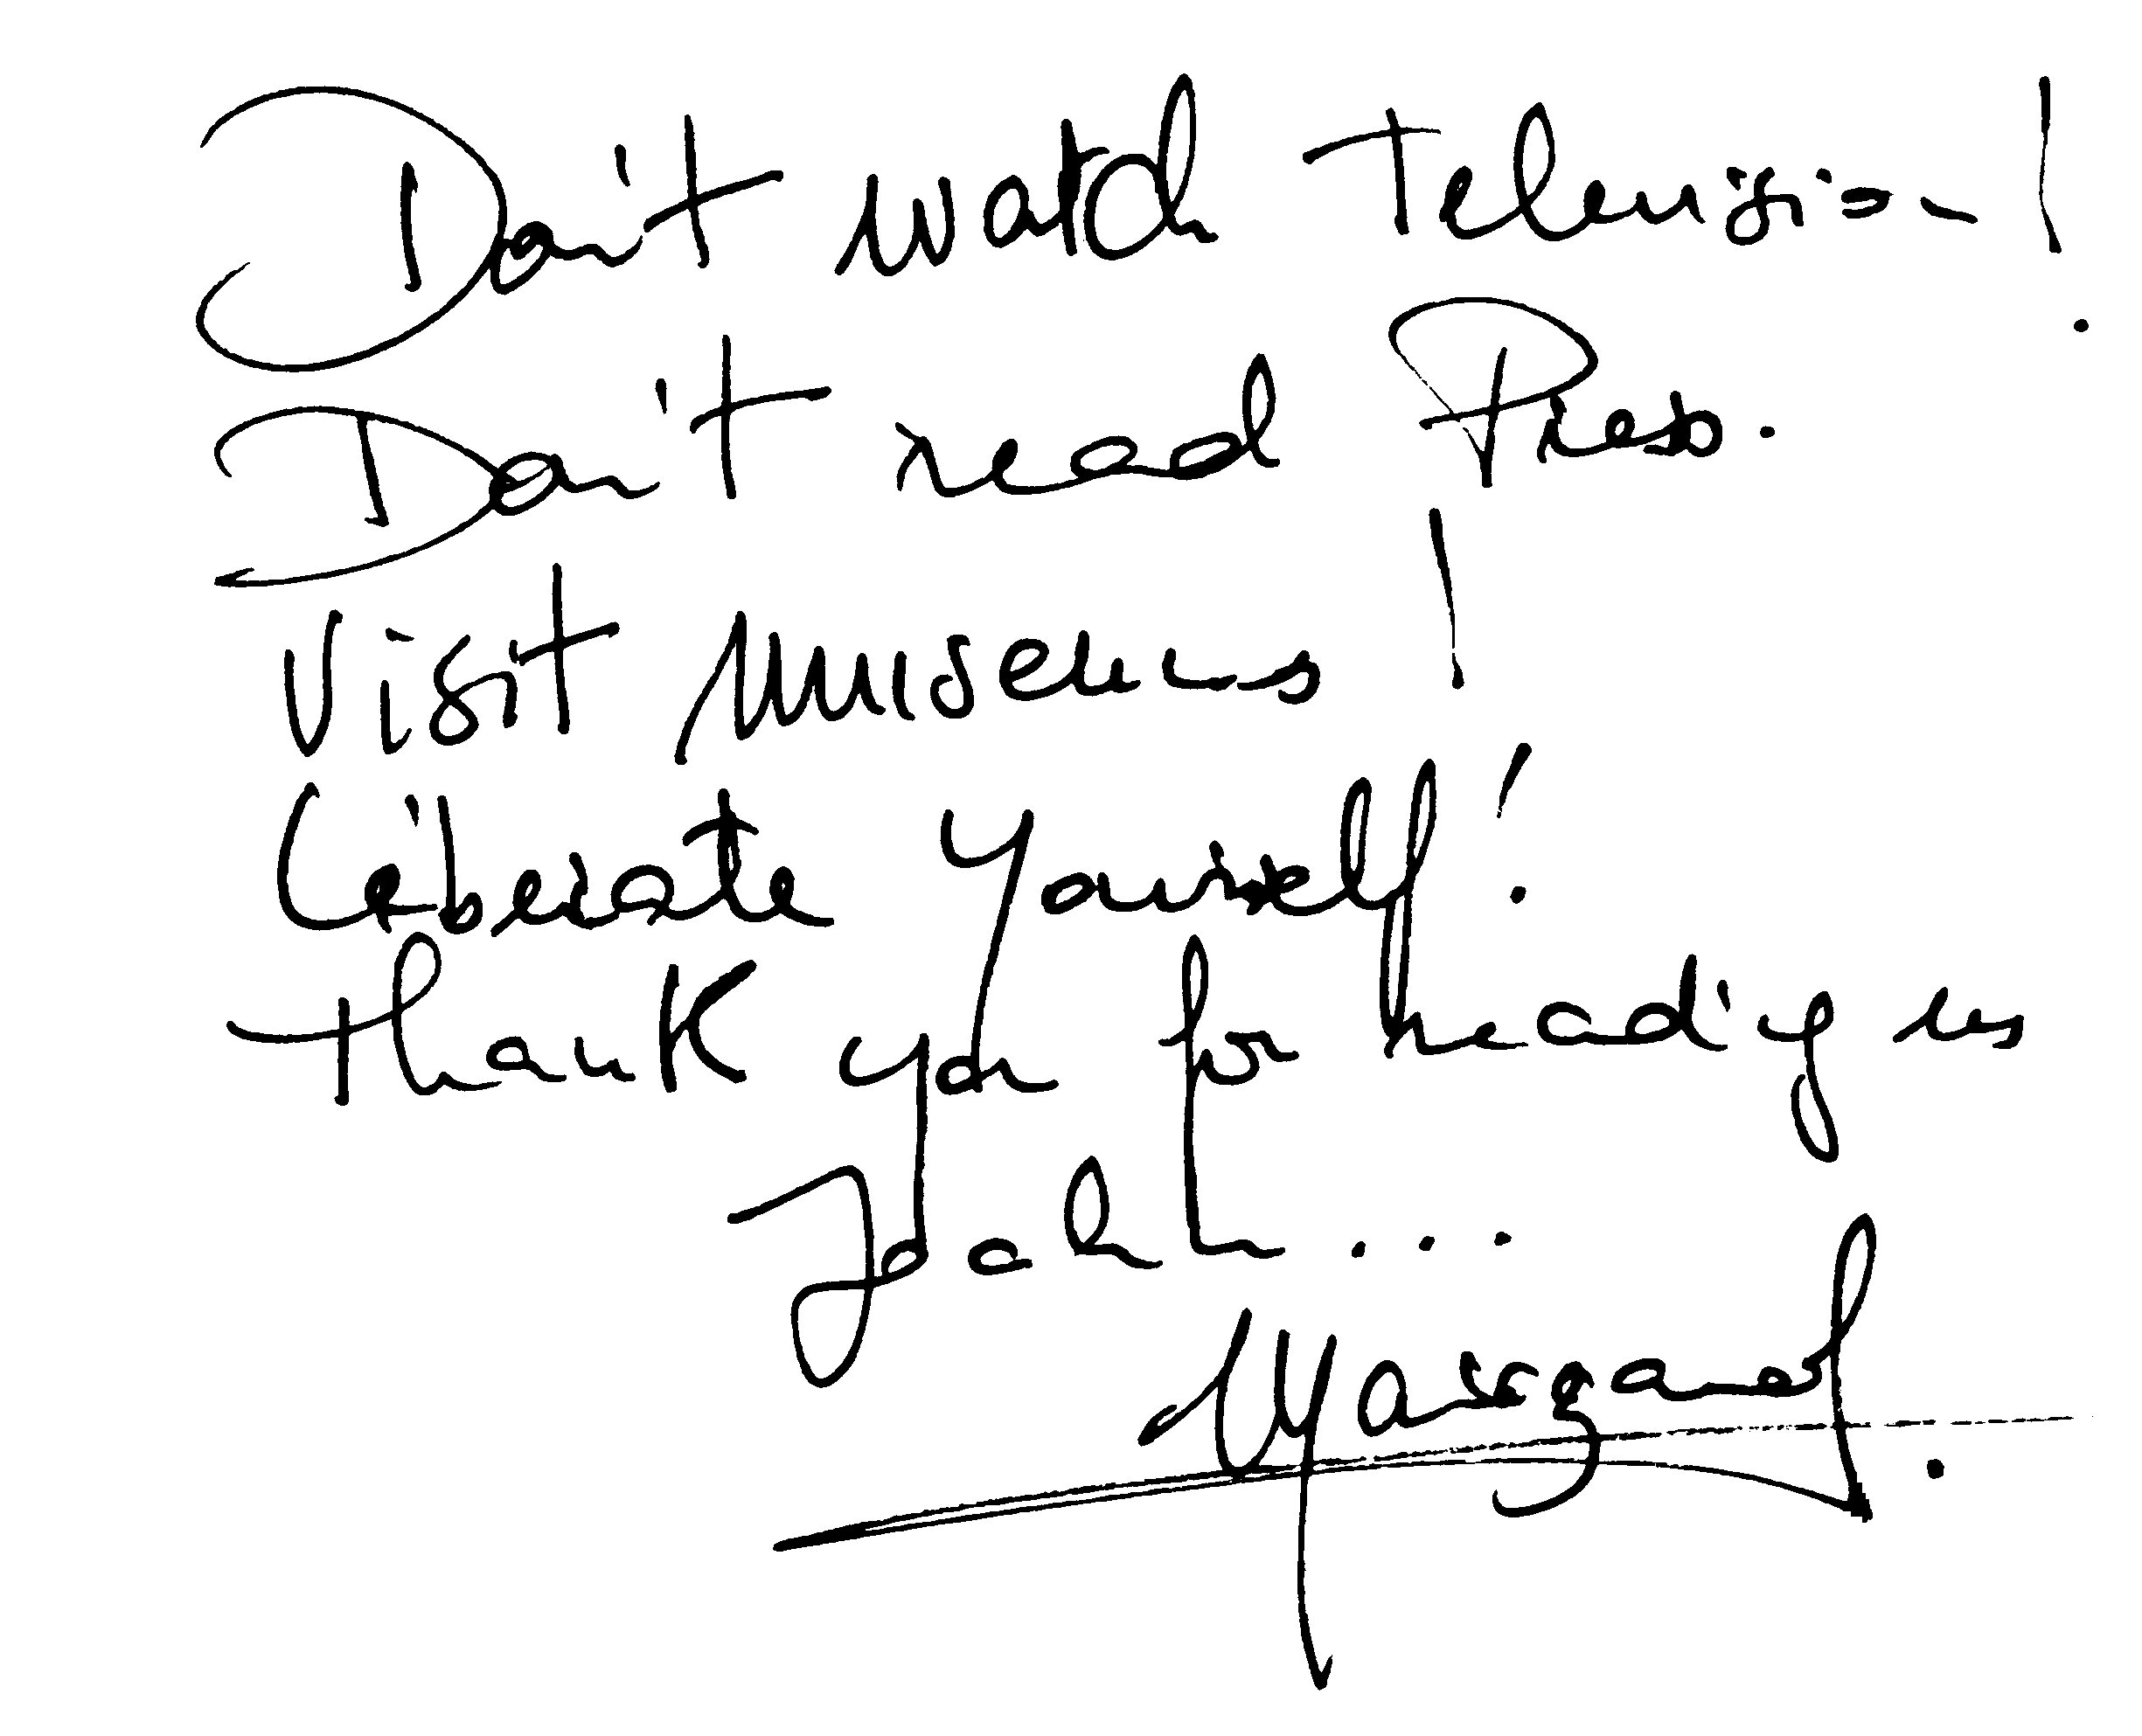 Don't watch Television!
Don't read Press.
Visit Museums!
Liberate Yourself!
Thank you for reading us